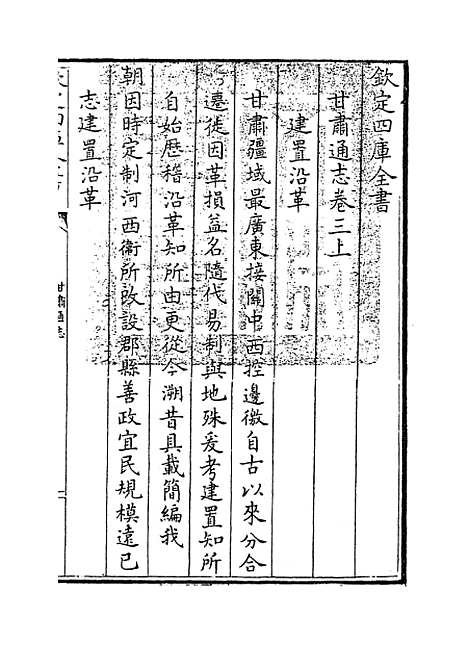 欽定四庫全書
甘肅通志卷三上
建置沿革
甘肅疆域最廣東接關中西控邊徼自古以來分合
遷徙因革損益名隨代易制與地殊爰考建置知所
自始歴稽沿革知所由更從今溯昔具載簡編我
朝因時定制河西衛所改設郡縣善政宜民規模遠已
志建置沿革
甘肅通志